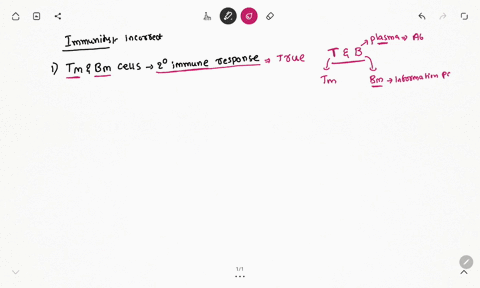 Immunity, Incorrect
1) Tm & Bm cells → 2° immune response → True
T & B
plasma → Ab
Tm
Bm → Information
1/1